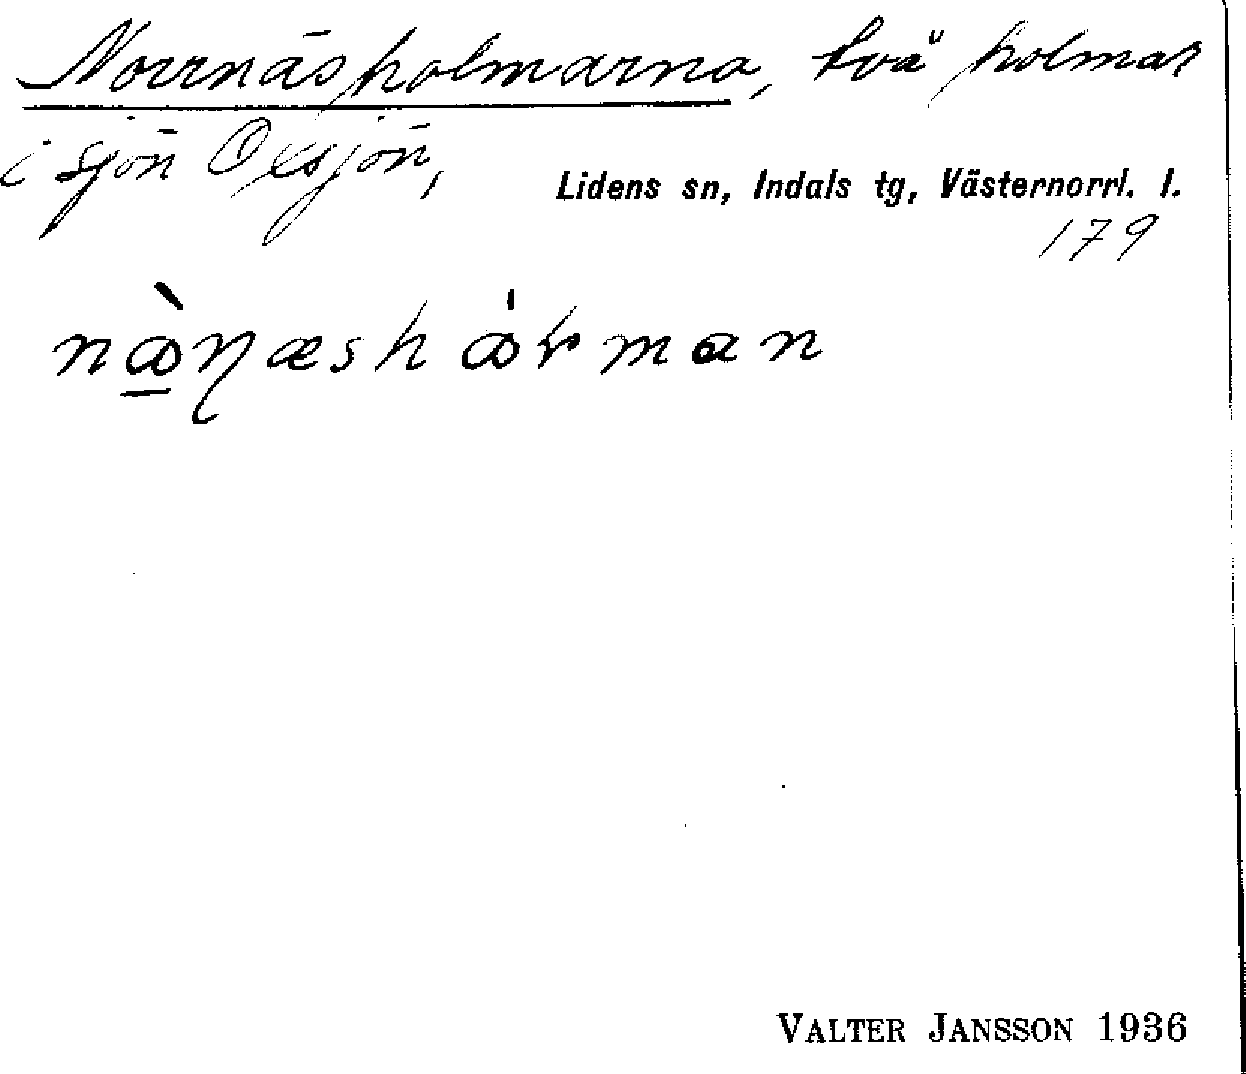 Norrnäsholmarna, två holmar
i sjön Oxsjön,
Lidens sn, Indals tg, Västernorrl. l.
179
VALTER JANSSON 1936